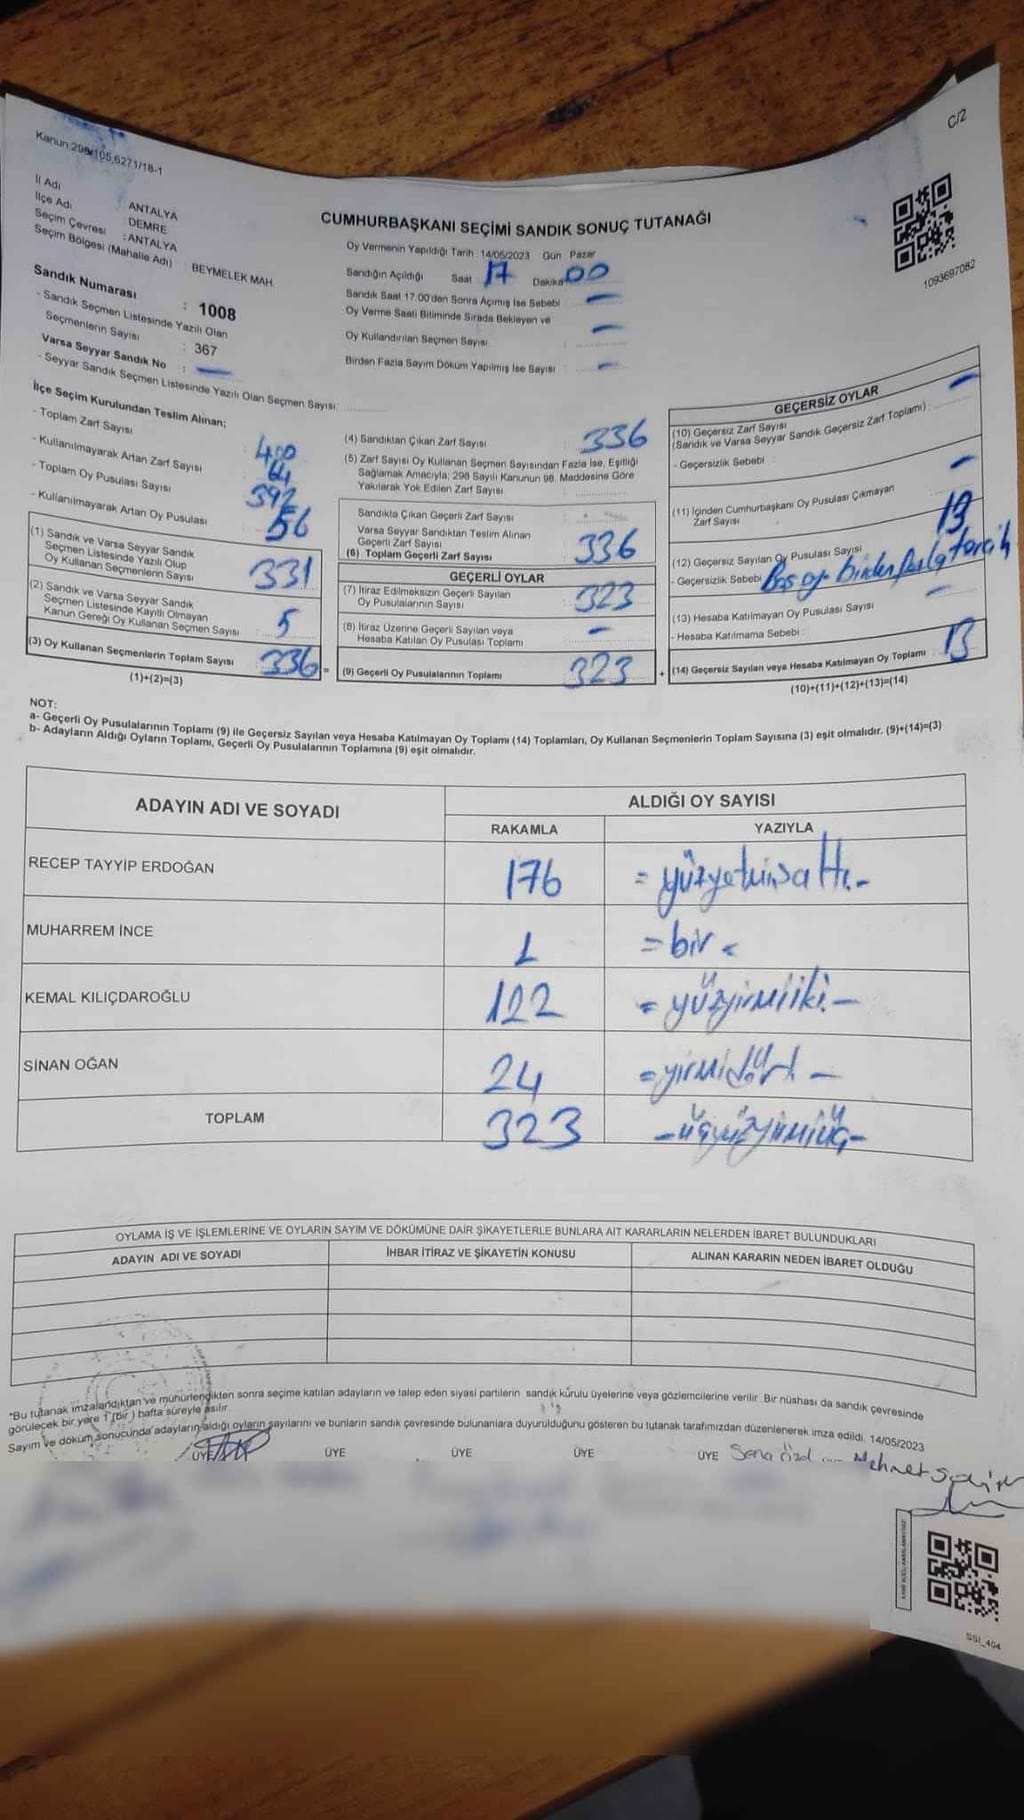 C/2
Kanun:298/105,6271/18-1
1093697082
CUMHURBAŞKANI SEÇİMİ SANDIK SONUÇ TUTANAĞI
İl Adı : ANTALYA
İlçe Adı : DEMRE
Seçim Çevresi : ANTALYA
Seçim Bölgesi (Mahalle Adı) : BEYMELEK MAH
Sandık Numarası : 1008
- Sandık Seçmen Listesinde Yazılı Olan
Seçmenlerin Sayısı : 367
Varsa Seyyar Sandık No : —
- Seyyar Sandık Seçmen Listesinde Yazılı Olan Seçmen Sayısı:
Oy Vermenin Yapıldığı Tarih : 14/05/2023 Gün Pazar
Sandığın Açıldığı Saat 17 Dakika 00
Sandık Saat 17.00'den Sonra Açımış İse Sebebi —
Oy Verme Saati Bitiminde Sırada Bekleyen ve
Oy Kullandırılan Seçmen Sayısı —
Birden Fazla Sayım Döküm Yapılmış İse Sayısı —
İlçe Seçim Kurulundan Teslim Alınan;
- Toplam Zarf Sayısı : 400
- Kullanılmayarak Artan Zarf Sayısı : 64
- Toplam Oy Pusulası Sayısı : 392
- Kullanılmayarak Artan Oy Pusulası : 56
(1) Sandık ve Varsa Seyyar Sandık
Seçmen Listesinde Yazılı Olup
Oy Kullanan Seçmenlerin Sayısı : 331
(2) Sandık ve Varsa Seyyar Sandık
Seçmen Listesinde Kayıtlı Olmayan
Kanun Gereği Oy Kullanan Seçmen Sayısı : 5
(3) Oy Kullanan Seçmenlerin Toplam Sayısı : 336 =
(1)+(2)=(3)
(4) Sandıktan Çıkan Zarf Sayısı : 336
(5) Zarf Sayısı Oy Kullanan Seçmen Sayısından Fazla İse, Eşitliği
Sağlamak Amacıyla, 298 Sayılı Kanunun 98. Maddesine Göre
Yakılarak Yok Edilen Zarf Sayısı :
Sandıkla Çıkan Geçerli Zarf Sayısı
Varsa Seyyar Sandıktan Teslim Alınan
Geçerli Zarf Sayısı
(6) Toplam Geçerli Zarf Sayısı : 336
GEÇERLİ OYLAR
(7) İtiraz Edilmeksizin Geçerli Sayılan
Oy Pusulalarının Sayısı : 323
(8) İtiraz Üzerine Geçerli Sayılan veya
Hesaba Katılan Oy Pusulası Toplamı : —
(9) Geçerli Oy Pusulalarının Toplamı : 323 +
GEÇERSİZ OYLAR
(10) Geçersiz Zarf Sayısı —
(Sandık ve Varsa Seyyar Sandık Geçersiz Zarf Toplamı) :
- Geçersizlik Sebebi :
(11) İçinden Cumhurbaşkanı Oy Pusulası Çıkmayan
Zarf Sayısı —
(12) Geçersiz Sayılan Oy Pusulası Sayısı 13
- Geçersizlik Sebebi Boş oy- birden fazla tercih
(13) Hesaba Katılmayan Oy Pusulası Sayısı —
- Hesaba Katılmama Sebebi :
(14) Geçersiz Sayılan veya Hesaba Katılmayan Oy Toplamı : 13
(10)+(11)+(12)+(13)=(14)
NOT:
a- Geçerli Oy Pusulalarının Toplamı (9) ile Geçersiz Sayılan veya Hesaba Katılmayan Oy Toplamı (14) Toplamları, Oy Kullanan Seçmenlerin Toplam Sayısına (3) eşit olmalıdır. (9)+(14)=(3)
b- Adayların Aldığı Oyların Toplamı, Geçerli Oy Pusulalarının Toplamına (9) eşit olmalıdır.
ADAYIN ADI VE SOYADI ALDIĞI OY SAYISI
RAKAMLA YAZIYLA
RECEP TAYYİP ERDOĞAN 176 = yüzyetmişaltı.-
MUHARREM İNCE 1 = bir =
KEMAL KILIÇDAROĞLU 122 = yüzyirmiiki. —
SİNAN OĞAN 24 = yirmidört —
TOPLAM 323 - üçyüzyirmiüç-
OYLAMA İŞ VE İŞLEMLERİNE VE OYLARIN SAYIM VE DÖKÜMÜNE DAİR ŞİKAYETLERLE BUNLARA AİT KARARLARIN NELERDEN İBARET BULUNDUKLARI
ADAYIN ADI VE SOYADI İHBAR İTİRAZ VE ŞİKAYETİN KONUSU ALINAN KARARIN NEDEN İBARET OLDUĞU
"Bu tutanak imzalandıktan ve mühürlendikten sonra seçime katılan adayların ve talep eden siyasi partilerin sandık kurulu üyelerine veya gözlemcilerine verilir. Bir nüshası da sandık çevresinde
görülecek bir yere 1 (bir) hafta süreyle asılır.
Sayım ve döküm sonucunda adayların aldığı oyların sayılarını ve bunların sandık çevresinde bulunanlara duyurulduğunu gösteren bu tutanak tarafımızdan düzenlenerek imza edildi. 14/05/2023
ÜYE ÜYE ÜYE ÜYE ÜYE Sena Özal Mehmet
SSİ_404